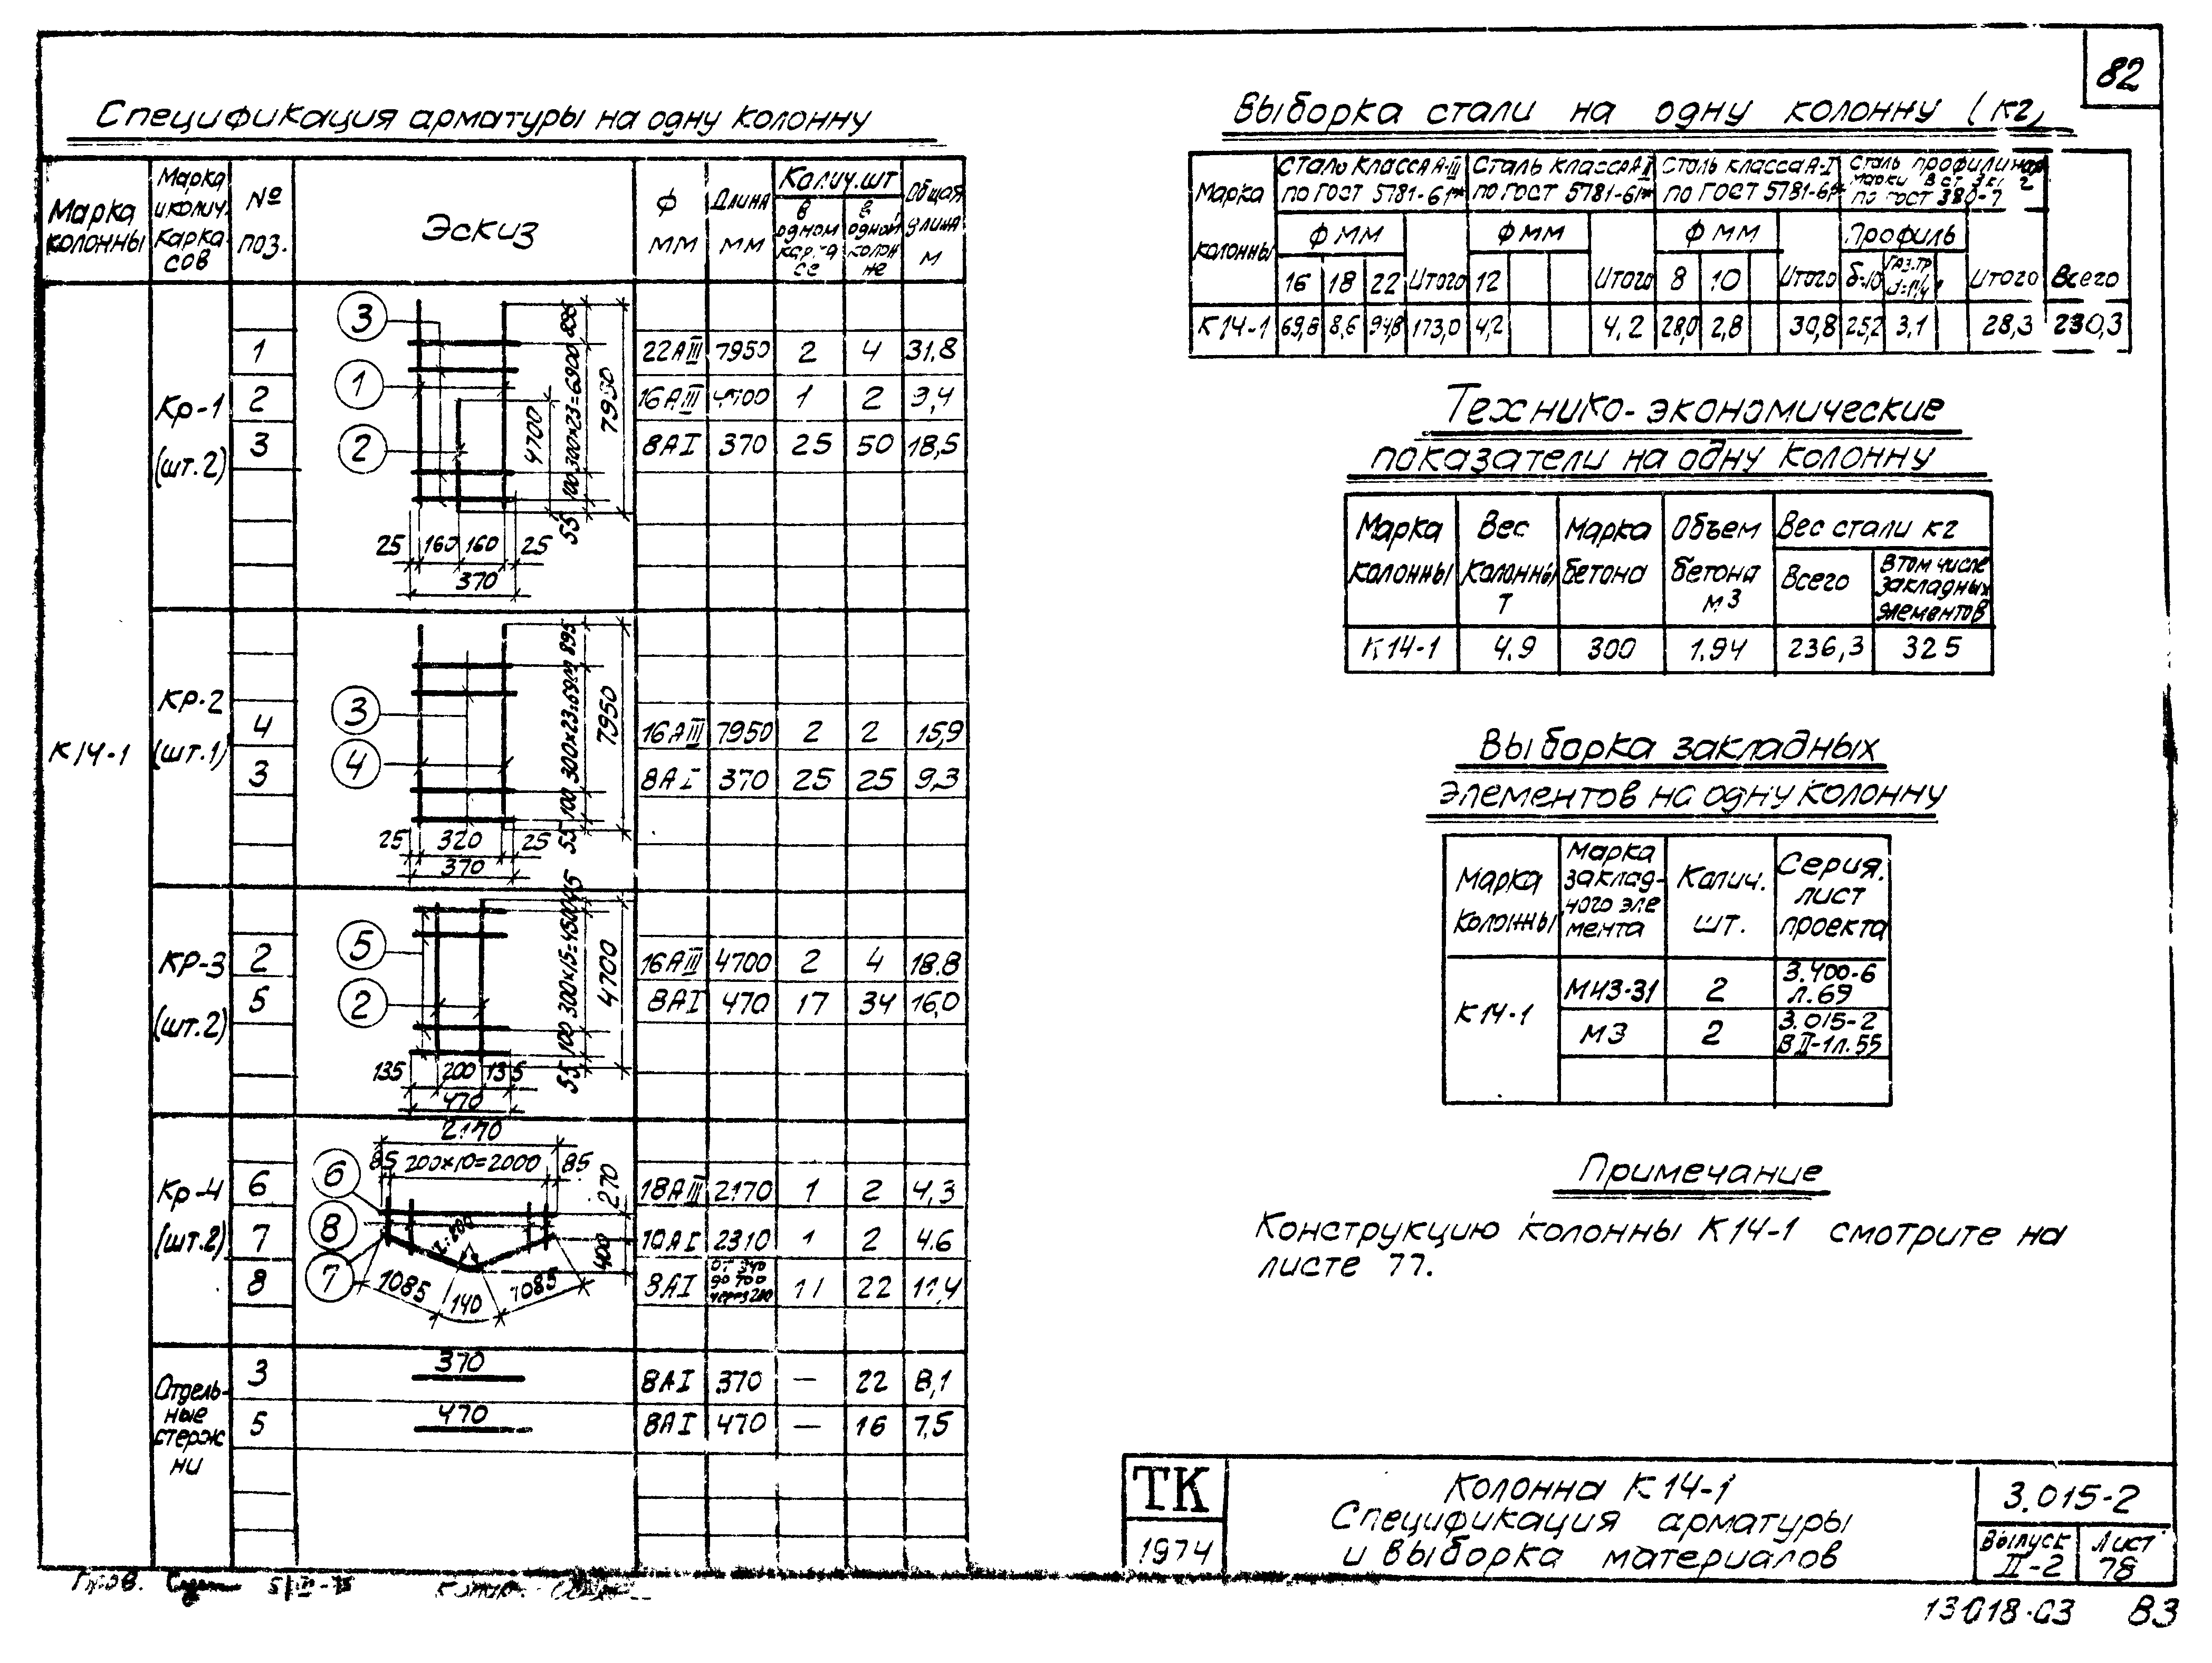 82
Спецификация арматуры на одну колонну
Марка колонны
Марка и колич. карка-сов
№ поз.
Эскиз
Ф мм
Длина мм
Колич. шт
в одном каркасе
в одной колонне
Общая длина м
К14-1
Кр-1 (шт.2)
3
1
2
895
300х23=6900
100
55
7950
4700
25 160 160 25
370
1 22АIII 7950 2 4 31,8
2 16АIII 4700 1 2 9,4
3 8АI 370 25 50 18,5
Кр-2 (шт.1)
3
4
895
300х23=6900
100
55
7950
25 320 25
370
4 16АIII 7950 2 2 15,9
3 8АI 370 25 25 9,3
Кр-3 (шт.2)
5
2
45
300х15=4500
100
55
4700
135 200 135
470
2 16АIII 4700 2 4 18.8
5 8АI 470 17 34 16,0
Кр-4 (шт.2)
2170
85 200х10=2000 85
270
400
6
8
7
1085 140 1085
6 18АIII 2170 1 2 4,3
7 10АI 2310 1 2 4.6
8 8АI 11 22 11,4
Отдель-
ные
стерж
ни
370
3 8АI 370 — 22 8,1
470
5 8АI 470 — 16 7,5
Выборка стали на одну колонну (кг)
Марка колонны
Сталь класса А-III по ГОСТ 5781-61*
Сталь класса А-II по ГОСТ 5781-61*
Сталь класса А-I по ГОСТ 5781-61*
Сталь профильная марки
по ГОСТ 380-7
Ф мм Ф мм Ф мм Профиль
16 18 22 Итого 12 Итого 8 10 Итого δ-10 Газ.тр d=1¼" Итого Всего
К14-1 69,8 8,6 94,8 173,0 4,2 4,2 28,0 2,8 30,8 25,2 3,1 28,3 230,3
Технико-экономические
показатели на одну колонну
Марка колонны
Вес колонны т
Марка бетона
Объем бетона м3
Вес стали кг
Всего
В том числе закладных элементов
К14-1 4.9 300 1.94 236,3 325
Выборка закладных
элементов на одну колонну
Марка колонны
Марка заклад-ного элемента
Колич. шт.
Серия. лист проекта
К14-1
МНЗ-31 2 3.400-6 л.69
М3 2 3.015-2 В II-1 л.55
Примечание
Конструкцию колонны К14-1 смотрите на
листе 77.
ТК
1974
Колонна К14-1
Спецификация арматуры
и выборка материалов
3.015-2
Выпуск II-2
Лист 78
Пров.
13018-03 83